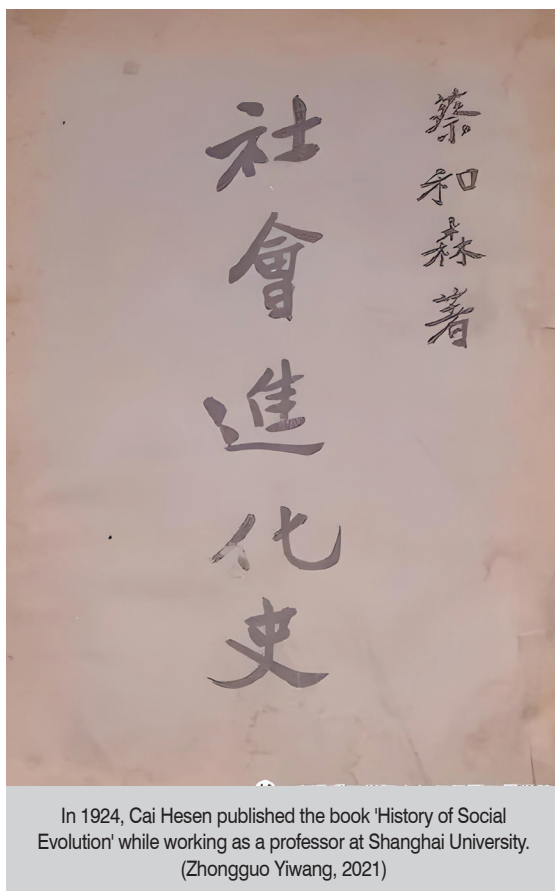 蔡和森著
社會進化史
In 1924, Cai Hesen published the book 'History of Social
Evolution' while working as a professor at Shanghai University.
(Zhongguo Yiwang, 2021)